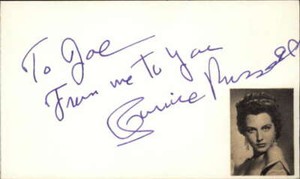 To Joe
From me to you
Russell